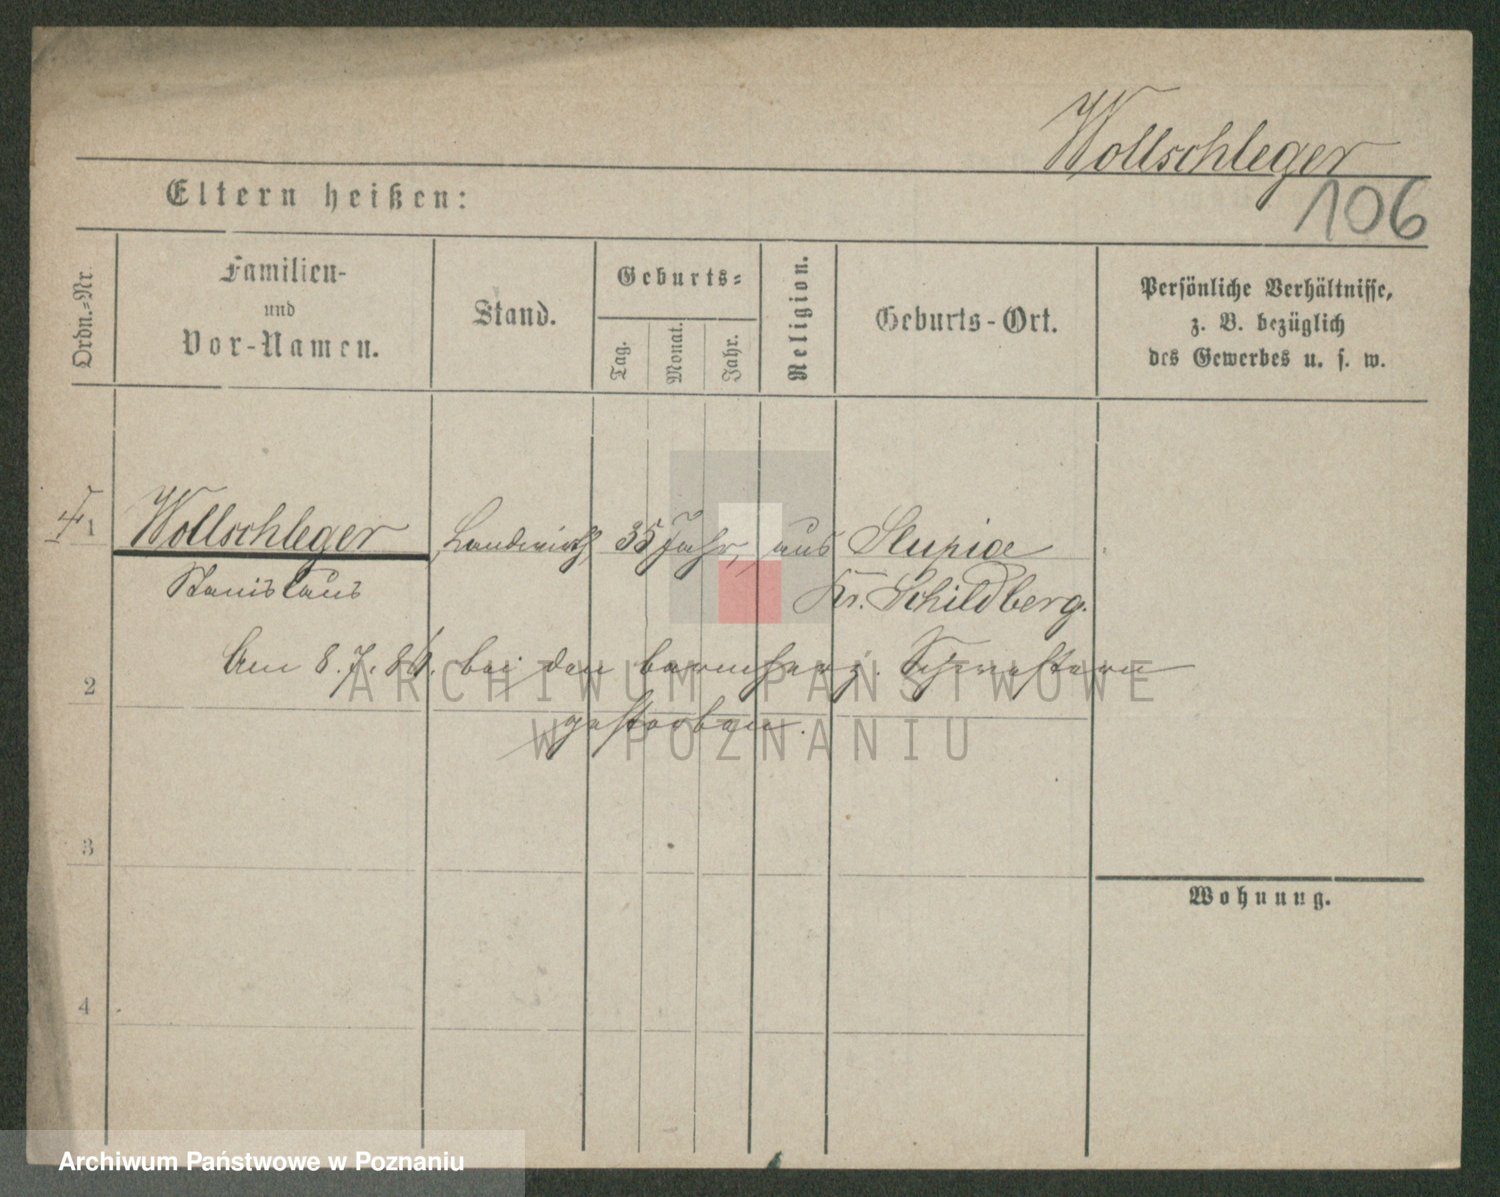 Wollschleger
106
Eltern heißen:
Ordn.-Nr.
Familien-
und
Vor-Namen.
Stand.
Geburts-
Tag.
Monat.
Jahr.
Religion.
Geburts-Ort.
Persönliche Verhältnisse,
z. B. bezüglich
des Gewerbes u. s. w.
1 Wollschleger Landwirth, 35 Jahr, aus Slupia
Stanislaus Kr. Schildberg.
Am 8. 7. bei den barmherz. Schwestern
2
gestorben.
3
Wohnung.
4
ARCHIWUM PAŃSTWOWE
W POZNANIU
Archiwum Państwowe w Poznaniu